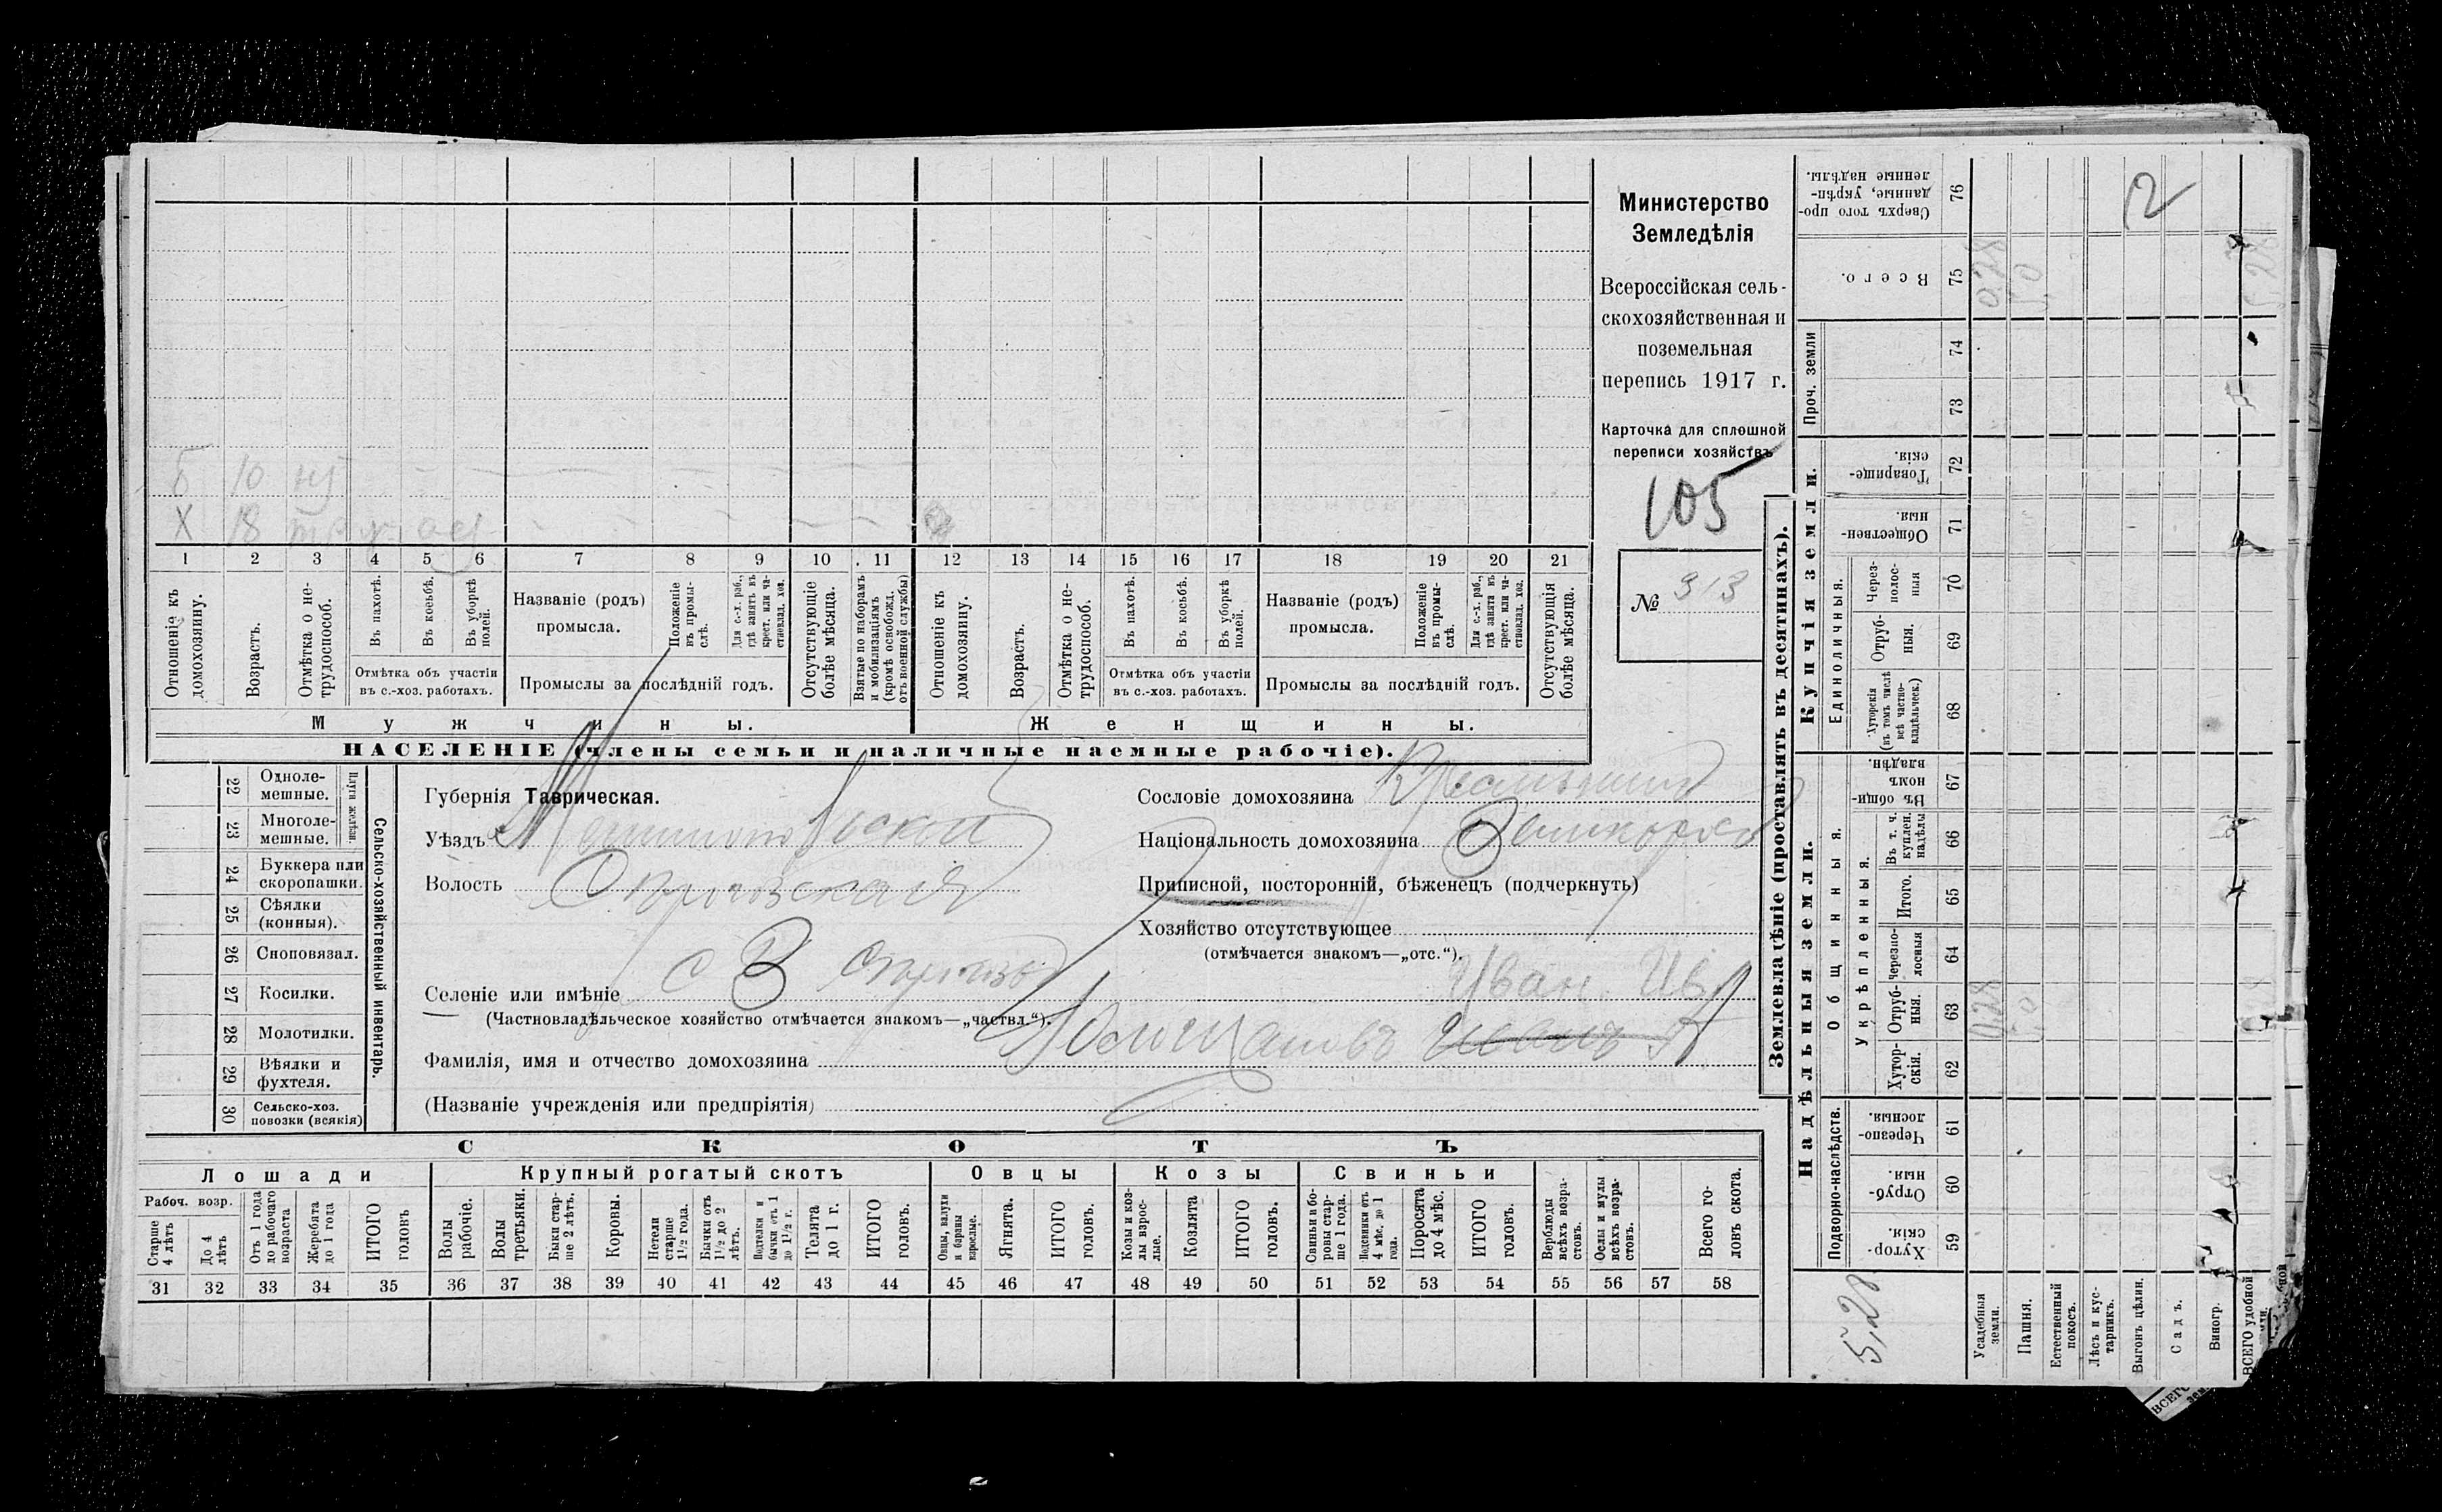 Б 10 н/
Х 18
1 2 3 4 5 6 7 8 9 10 11 12 13 14 15 16 17 18 19 20 21
Отношеніе къ домохозяину.
Возрастъ.
Отмѣтка о не-трудоспособ.
Въ пахотѣ.
Въ косьбѣ.
Въ уборкѣ полей.
Отмѣтка объ участіи
въ с.-хоз. работахъ.
Названіе (родъ)
промысла.
Положеніе въ промы-слѣ.
Для с.-х. раб., гдѣ занятъ въ крест. или ча-стновлад. хоз.
Промыслы за послѣдній годъ.
Отсутствующіе болѣе мѣсяца.
Взятые по наборамъ и мобилизаціямъ (кромѣ освобожд. отъ военной службы)
Отношеніе къ домохозяину.
Возрастъ.
Отмѣтка о не-трудоспособ.
Въ пахотѣ.
Въ косьбѣ.
Въ уборкѣ полей.
Отмѣтка объ участіи
въ с.-хоз. работахъ.
Названіе (родъ)
промысла.
Положеніе въ промы-слѣ.
Для с.-х. раб., гдѣ занята въ крест. или ча-стновлад. хоз.
Промыслы за послѣдній годъ.
Отсутствующія болѣе мѣсяца.
Мужчины.
Женщины.
НАСЕЛЕНІЕ (члены семьи и наличные наемные рабочіе).
Министерство
Земледѣлія
Всероссійская сель-
скохозяйственная и
поземельная
перепись 1917 г.
Карточка для сплошной
переписи хозяйствъ
105
№ 313
Сельско-хозяйственный инвентарь.
Плуги желѣзн.
22 Одноле-мешные.
23 Многоле-мешные.
24 Буккера или скоропашки.
25 Сѣялки (конныя).
26 Сноповязал.
27 Косилки.
28 Молотилки.
29 Вѣялки и фухтеля.
30 Сельско-хоз. повозки (всякія)
Губернія Таврическая.
Уѣздъ
Волость
Селеніе или имѣніе с
(Частновладѣльческое хозяйство отмѣчается знакомъ—„частвл.“).
Фамилія, имя и отчество домохозяина
Иван. Ив.
(Названіе учрежденія или предпріятія)
Сословіе домохозяина
Національность домохозяина
Приписной, посторонній, бѣженецъ (подчеркнуть)
Хозяйство отсутствующее
(отмѣчается знакомъ—„отс.“).
СКОТЪ
Лошади
Крупный рогатый скотъ
Овцы
Козы
Свиньи
Рабоч. возр.
Старше 4 лѣтъ
До 4 лѣтъ
Отъ 1 года до рабочаго возраста
Жеребята до 1 года
ИТОГО головъ
Волы рабочіе.
Волы третьяки.
Быки стар-ше 2 лѣтъ.
Коровы.
Нетели старше 1½ года.
Бычки отъ 1½ до 2 лѣтъ.
Подтелки и бычки отъ 1 до 1½ г.
Телята до 1 г.
ИТОГО головъ.
Овцы, валухи и бараны взрослые.
Ягнята.
ИТОГО головъ.
Козы и коз-лы взрос-лые.
Козлята
ИТОГО головъ.
Свиньи и бо-ровы стар-ше 1 года.
Подсвинки отъ 4 мѣс. до 1 года.
Поросята до 4 мѣс.
ИТОГО головъ.
Верблюды всѣхъ возра-стовъ.
Ослы и мулы всѣхъ возра-стовъ.
Всего го-ловъ скота.
31 32 33 34 35 36 37 38 39 40 41 42 43 44 45 46 47 48 49 50 51 52 53 54 55 56 57 58
Землевладѣніе (проставлять въ десятинахъ).
Надѣльныя земли.
Купчія земли.
Проч. земли
Подворно-наслѣдств.
Общинныя.
Укрѣпленныя.
Единоличныя.
Сверхъ того про-данные, укрѣп-ленные надѣлы. 76
Всего. 75
74
73
Товарище-скія. 72
Обществен-ныя. 71
Через-полос-ныя 70
Отруб-ныя. 69
Хуторскія (въ томъ числѣ всѣ частно-владѣльческ.) 68
Въ общи-номъ владѣн. 67
Въ т. ч. куплен. надѣлы 66
Итого. 65
Черезпо-лосныя 64
Отруб-ныя. 63
Хутор-скія. 62
Черезпо-лосныя 61
Отруб-ныя. 60
Хутор-скія. 59
Усадебныя земли.
Пашня.
Естественный покосъ.
Лѣсъ и кус-тарникъ.
Выгонъ цѣлин.
Садъ.
Виногр.
ВСЕГО удобной
2
0,28
5,0
5,28
0,28
5,0
5,28